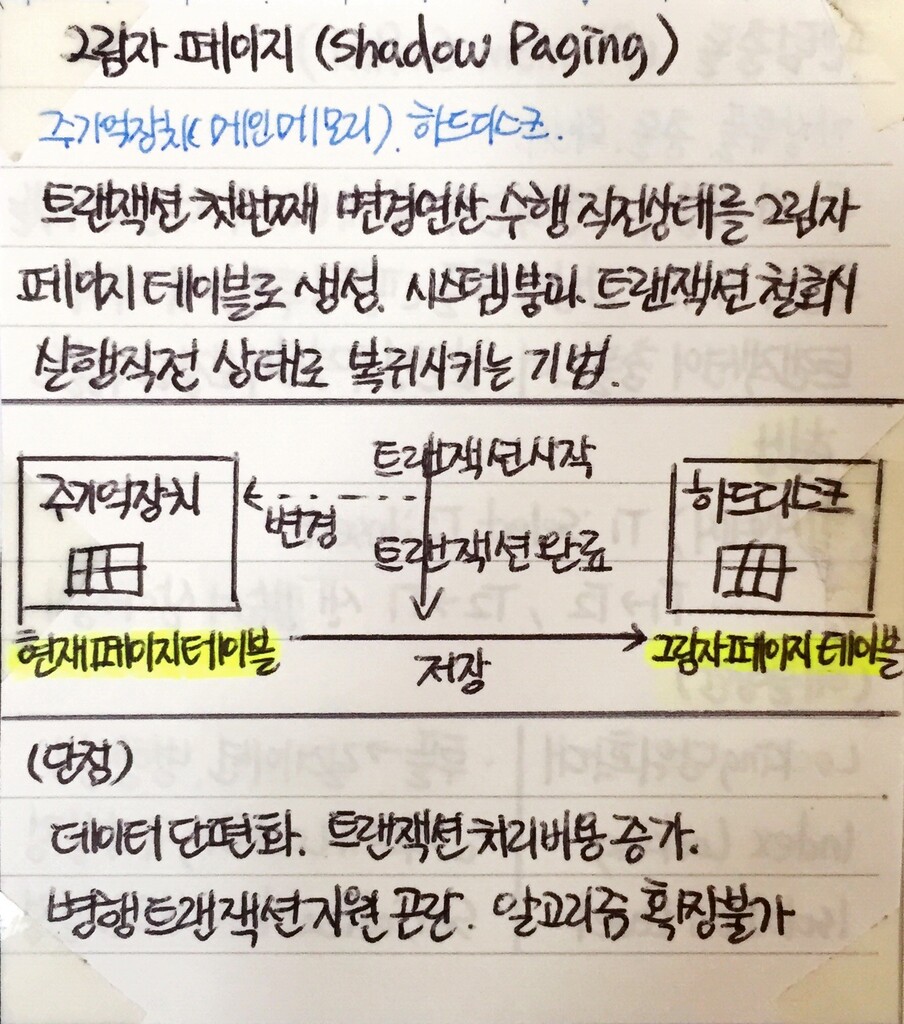 그림자 페이지 (Shadow Paging)
주기억장치(메인메모리). 하드디스크.
트랜잭션 첫번째 변경연산 수행 직전상태를 그림자
페이지 테이블로 생성. 시스템붕괴. 트랜잭션 철회시
실행직전 상태로 복귀시키는 기법.
트랜잭션시작
주기억장치
하드디스크
변경
트랜잭션완료
현재페이지테이블
그림자페이지테이블
저장
(단점)
데이터 단편화. 트랜잭션처리비용 증가.
병행트랜잭션지원 곤란. 알고리즘 확장불가